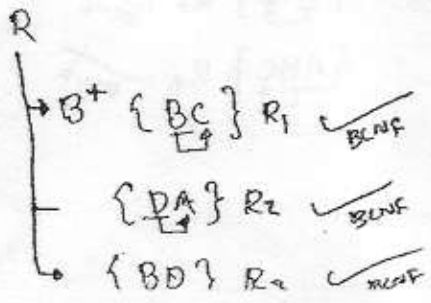 R
B+ {BC} R1 BCNF
{DA} R2 BCNF
{BD} BCNF